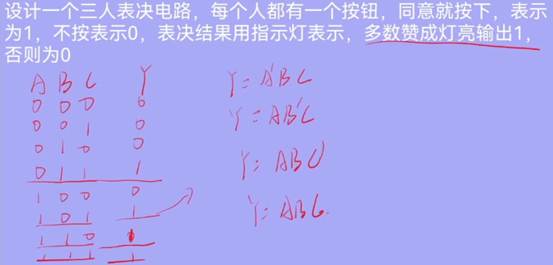 设计一个三人表决电路，每个人都有一个按钮，同意就按下，表示
为1，不按表示0，表决结果用指示灯表示，多数赞成灯亮输出1，
否则为0
A B C Y
0 0 0 0
0 0 1 0
0 1 0 0
0 1 1 1
1 0 0 0
1 0 1 1
1 1 0
1 1 1 1
Y = A'BC
Y = AB'C
Y = ABC'
Y = ABC.